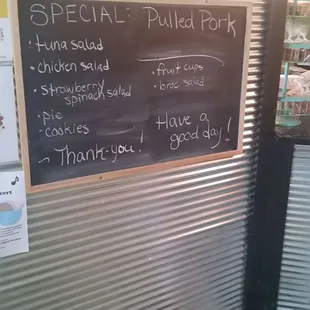 SPECIAL: Pulled Pork
• tuna salad
• chicken salad
• strawberry
spinach salad
• pie
• cookies
• fruit cups
• broc salad
~ Thank-you!
Have a
good day!